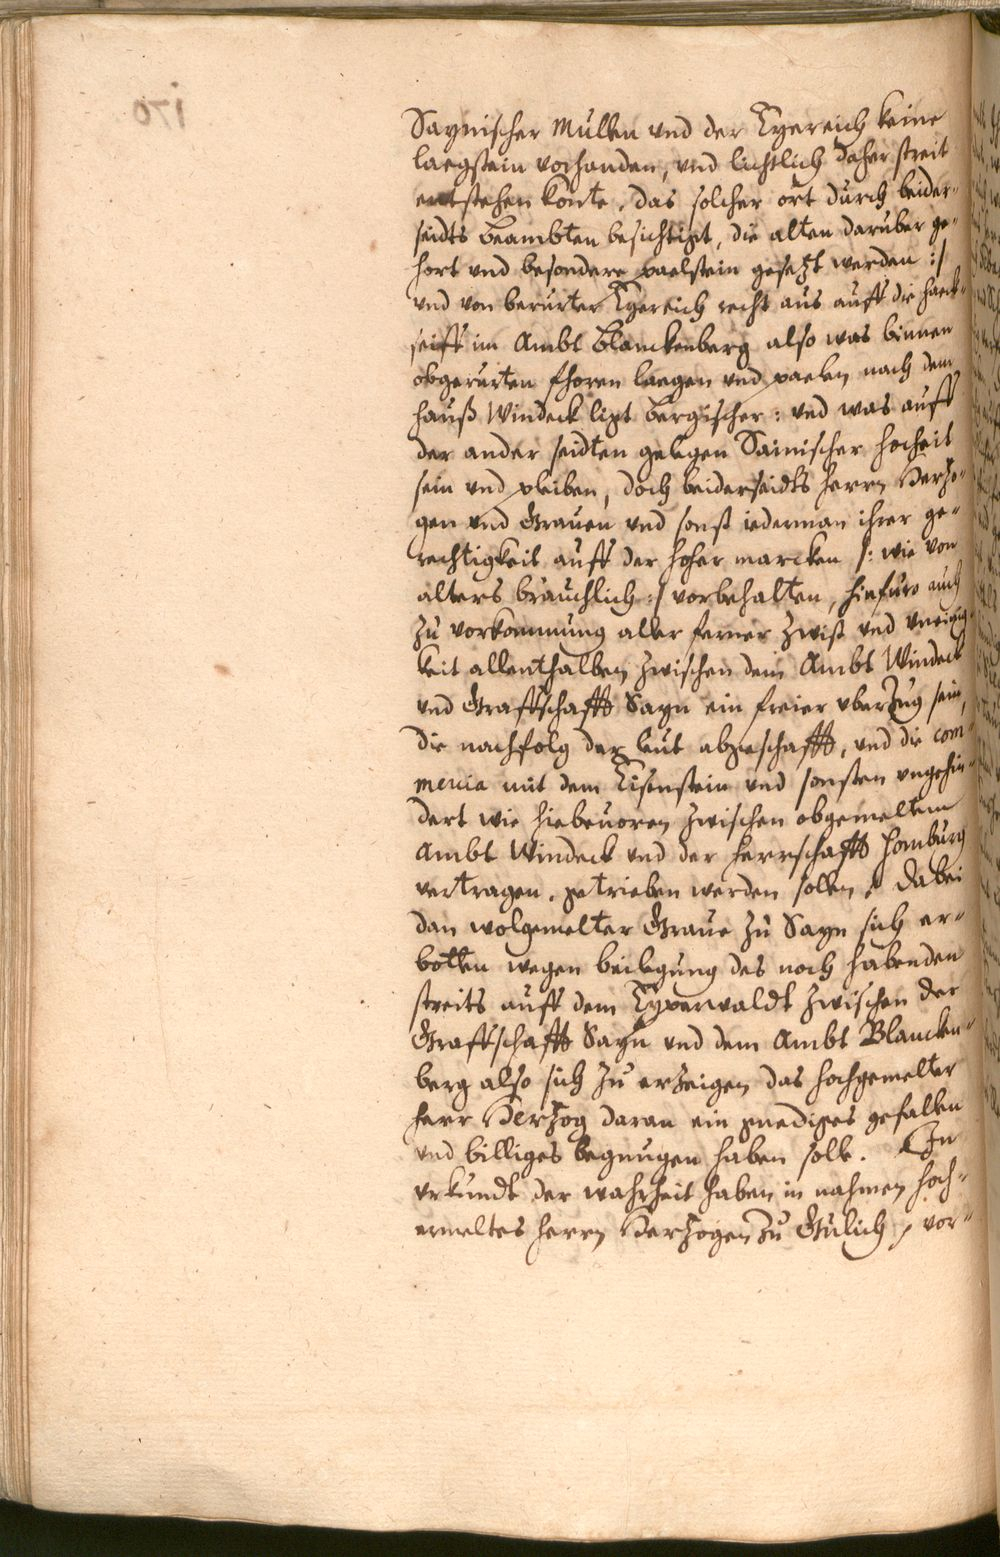 Saynischer Mullen vnd der Eyereich keine
laegstein vorhanden, vnd lichtlich daher streit
entstehen konte, das solcher ort durch beider-
seidts beambten besichtigt, die alten daruber ge-
hort vnd besondere paelstein gesetzt werden :/
vnd von berurter Eyereich recht aus auff die haeck-
seifft im Ambt Blanckenberg also was binnen
obgerurten fhoren laegen vnd paelen nach dem
hauß Windeck ligt Bergischer: vnd was auff
der ander seidten gelegen Sainischer hocheit
sein vnd pleiben, doch beiderseidts herrn Hertzo-
gen vnd Grauen vnd sonst iederman ihrer ge-
rechtigkeit auff der hoher marcken /: wie von
alters brauchlich :/ vorbehalten, hinfuro auch
zu vorkommung aller ferner zwist vnd vneinig-
keit allenthalben zwischen dem Ambt Windeck
vnd Graffschafft Sayn ein freier vberzug sein,
die nachfolg der leut abgeschafft, vnd die com-
mercia mit dem Eisenstein vnd sonsten vngehin-
dert wie hiebeuoren zwischen obgemeltem
Ambt Windeck vnd der herrschafft Homburg
vertragen, getrieben werden sollen, Dabei
dan wolgemelter Graue zu Sayn sich er-
botten wegen beilegung des noch habenden
streits auff dem Eyperwaldt zwischen der
Graffschafft Sayn vnd dem Ambt Blancken-
berg also sich zu erzeigen das hochgemelter
herr Hertzog daran ein gnediges gefallen
vnd billiges begnugen haben solle. In
vrkundt der wahrheit haben in nahmen hoch-
ermeltes herrn Hertzogen zu Gulich, vor-